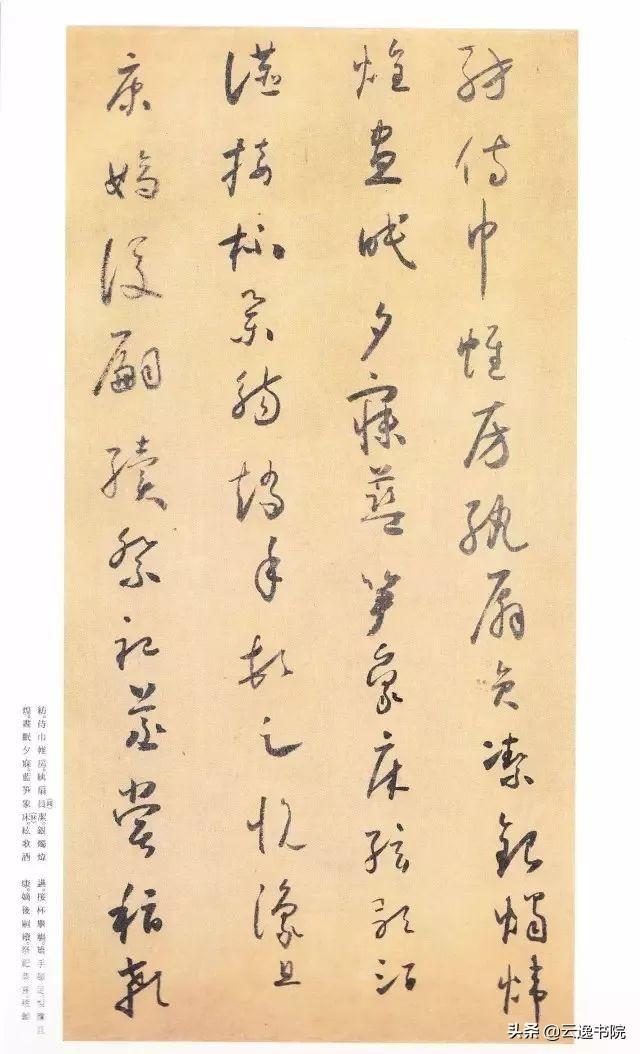 紡侍巾帷房紈扇員潔銀燭煒
煌晝眠夕寐藍笋象床弦歌酒
讌接杯舉觴矯手頓足悅豫且
康嫡後嗣續祭祀蒸嘗稽顙
紡。侍巾帷房。紈扇員(圓)潔。銀燭煒
煌。晝眠夕寐。藍笋象床。絃歌酒
讌。接杯舉觴。矯手頓足。悅豫且
康。嫡後嗣續。祭祀蒸嘗。稽顙
头条 @云逸书院